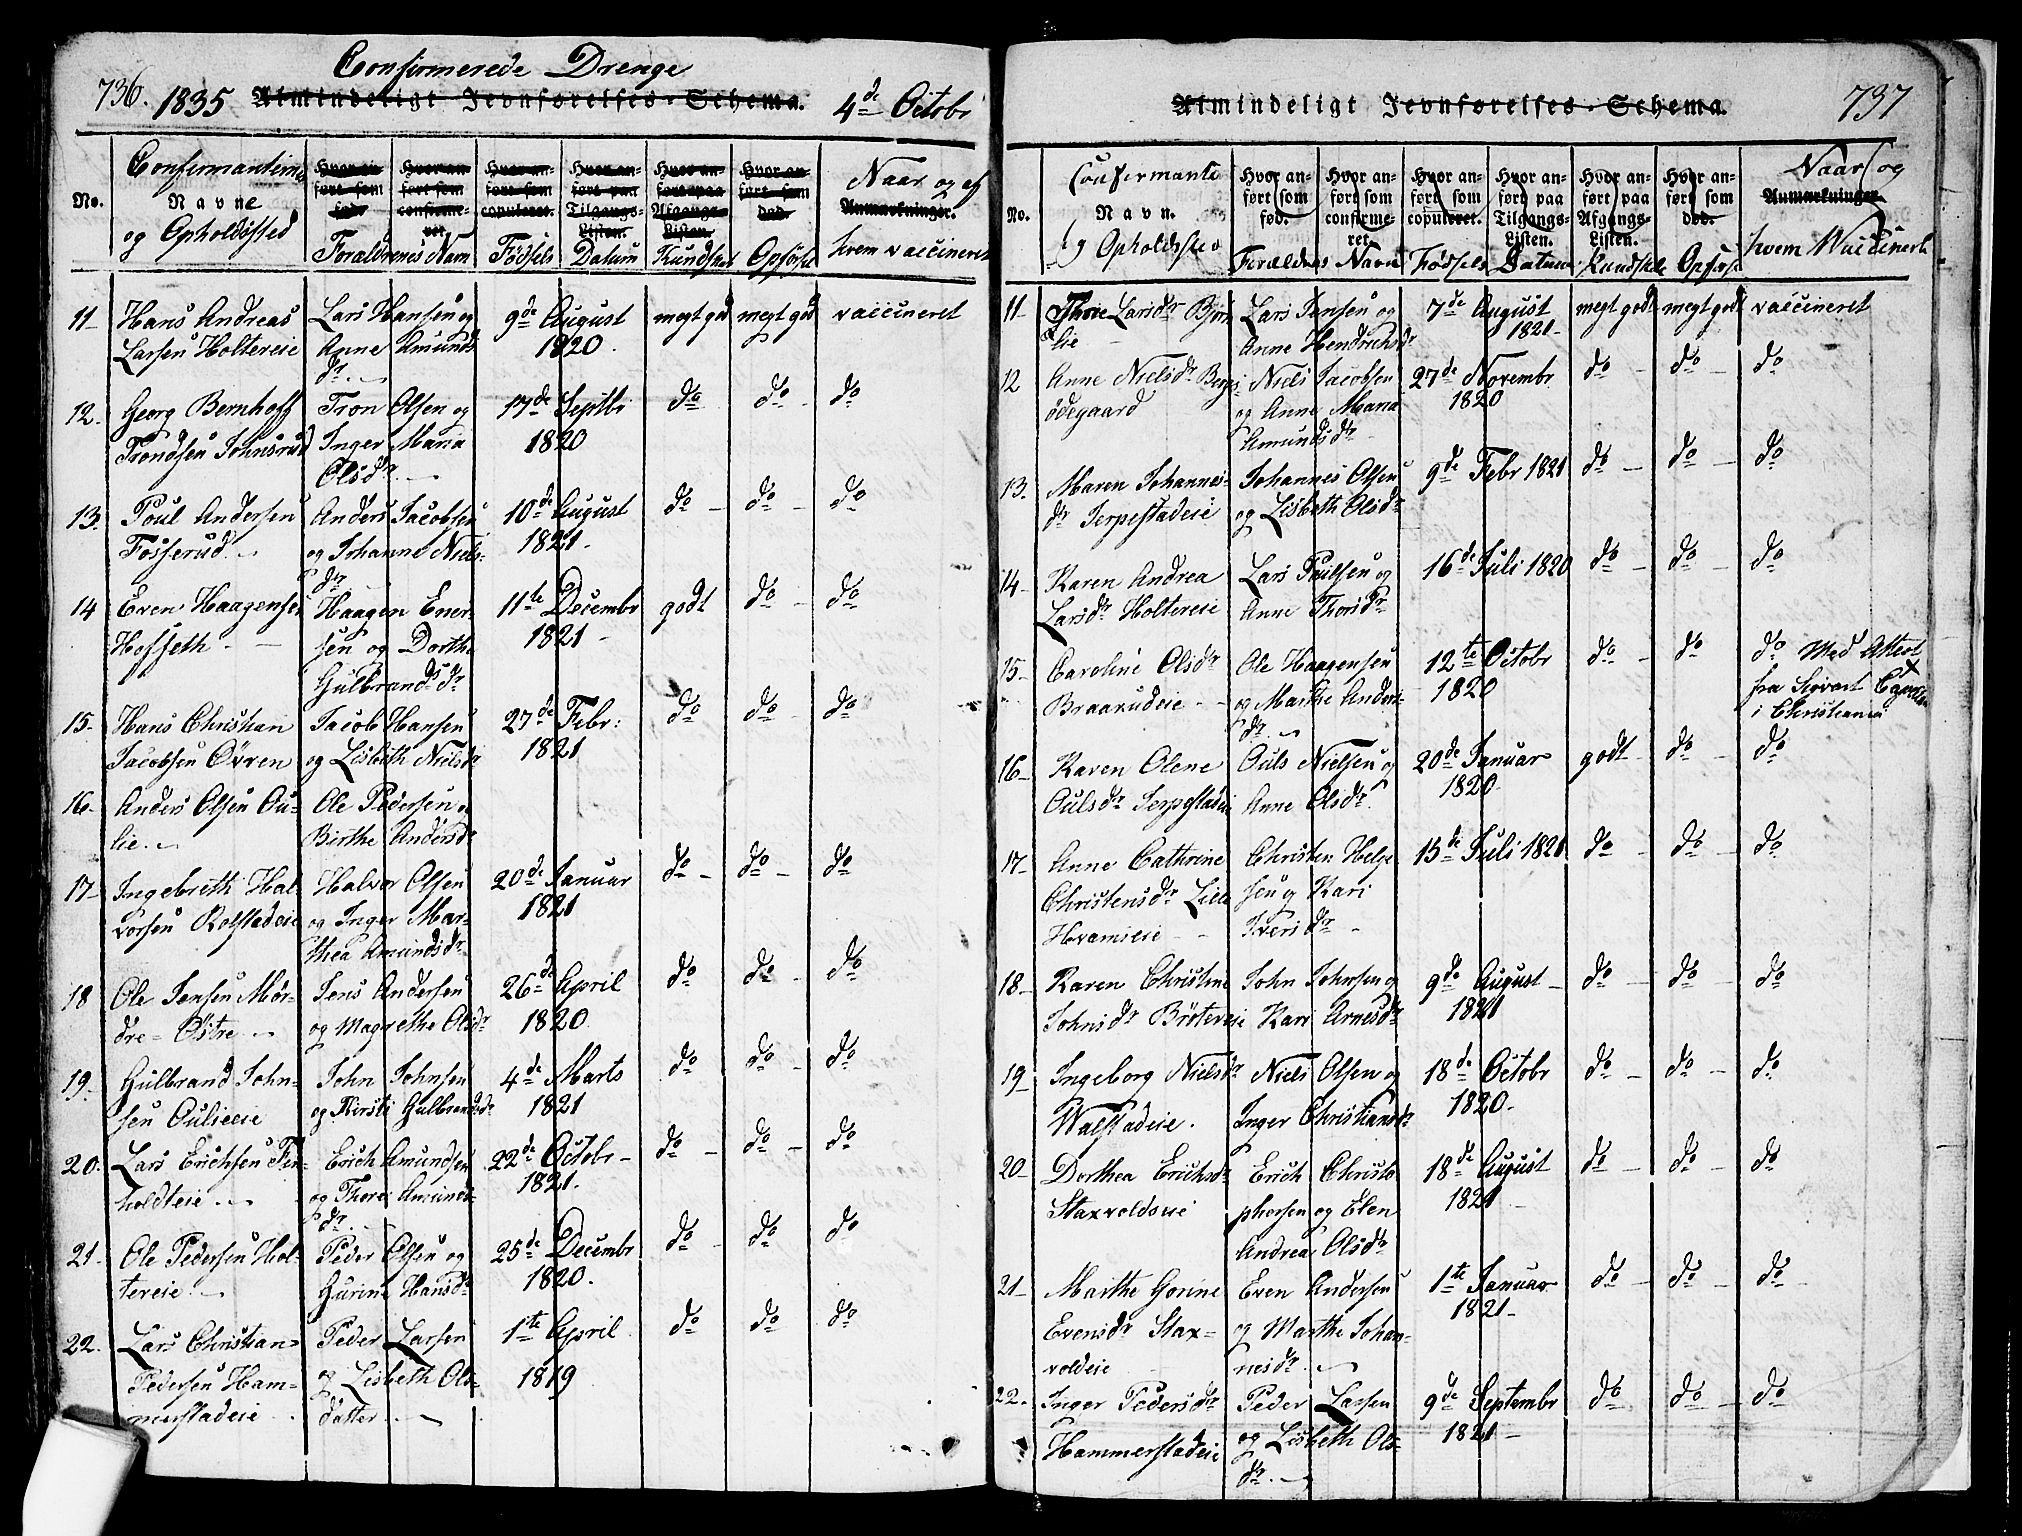 736. 1835 Confirmerede Drenge
Almindeligt Jevnførelses-Schema. 4de Octobr
No. Confirmantens Navne og Opholdssted
Hvor anført som fød.
Hvor anført som confirmeret.
Hvor anført som copuleret.
Hvor anført paa Tilgangs-Listen.
Hvor anført paa Afgangs-Listen.
Hvor anført som død.
Anmærkninger.
Forældrenes Navn Fødsels Datum Kundskab Opførsel Naar og af hvem vaccineret
11 Hans Andreas Lars Hansen og 9de August megt god megt god vaccineret
Larsen Holtereie Anne Amunds 1820.
dr.
12. Georg Bernhoff Tron Olsen og 17de Septbr do do do
Trondsen Johnsrud Inger Maria 1820
Olsdr.
13. Poul Andersen Anders Jacobsen 10de August do do do
Fosserud. og Johanne Niels- 1821.
dr
14 Even Haagensen Haagen Ener- 11te Decembr godt do do
Hoffseth sen og Dorthe 1821
Gulbrandsdr
15. Hans Christian Jacob Hansen 27de Febr: do do do
Jacobsen Øvren og Lisbeth Nielsdr 1821
16. Anders Olsen Au- Ole Pedersen og
lie. Birthe Andersdr
17 Ingebreth Hal- Halvor Olsen 20de Januar do do do
vorsen Rolstadeie og Inger Mar- 1821
thea Amundsdr
18 Ole Jensen Mør- Jens Andersen 26de April do do do
dre-Østre og Magrethe Olsdr 1820.
19. Gulbrand John- John Johnsen 4de Marts do do do
sen Aulieeie og Kirsti Gulbrandsdr 1821
20. Lars Erichsen Fin- Erich Amundsen 22de Octobr do do do
holdteie og Thore Amunds- 1821.
dr.
21. Ole Pedersen Hol- Peder Olsen og 25de Decembr do do do
tereie. Gurine Hansdr 1820.
22. Lars Christian Peder Larsen 1te April do do do
Pedersen Ham- og Lisbeth Ols- 1819
merstadeie datter.
Almindeligt Jevnførelses-Schema. 737
No. Confirmante Navn. og Opholdsted
Hvor anført som fød.
Hvor anført som confirmeret.
Hvor anført som copuleret.
Hvor anført paa Tilgangs-Listen.
Hvor anført paa Afgangs-Listen.
Hvor anført som død.
Anmærkninger.
Forældres Navn Fødsels Datum Kundskab Opførsel Naar og hvem Vaccineret
11 Thore Larsdr Bjørn Lars Jensen og 7de August megt godt megt godt vaccineret
lie Anne Hendrichsdr 1821
12 Anne Nielsdr Berge Niels Jacobsen 27de Novembr do do do
ødegaard og Anne Maria 1820
Amundsdr
13. Maren Johannes- Johannes Olsen 9de Febr 1821 do do do
dr Serpestadeie og Lisbeth Olsdr
14 Karen Andrea Lars Paulsen og 16de Juli 1820 do do do
Larsdr Holtereie Anne Thorsdr
15 Caroline Olsdr Ole Haagensen 12te Octobr do do do Med Attest
Braarudeie og Marthe Anders- 1820 fra Sigvart
dr. i Christiania
16 Karen Olene Ouls Nielsen og 20de Januar godt do do
Oulsdr Serpestadeie Anne Olsdr. 1820
17 Anne Cathrine Christen Helge 15de Juli 1821 do do do
Christensdr Lille sen og Kari
Hvamseie Iversdr
18 Karen Christine John Johnsen og 9de August do do do
Johnsdr Brøtereie Kari Arnesdr 1821
19 Ingeborg Nielsdr Niels Olsen og 18de Octobr do do do
Walstadeie. Inger Christiansdr 1820.
20 Dorthea Erichsdr Erich Christo 18de August do do do
Staxvoldseie phersen og Elen 1821
Andrea Olsdr
21 Marthe Gorine Even Andersen 1te Januar do do do
Evensdr Stax- og Marthe Johan- 1821
voldeie nesdr.
22. Inger Pedersdr Peder Larsen 9de Septembr do do do
Hammerstadeie og Lisbeth Ols- 1821
dr.